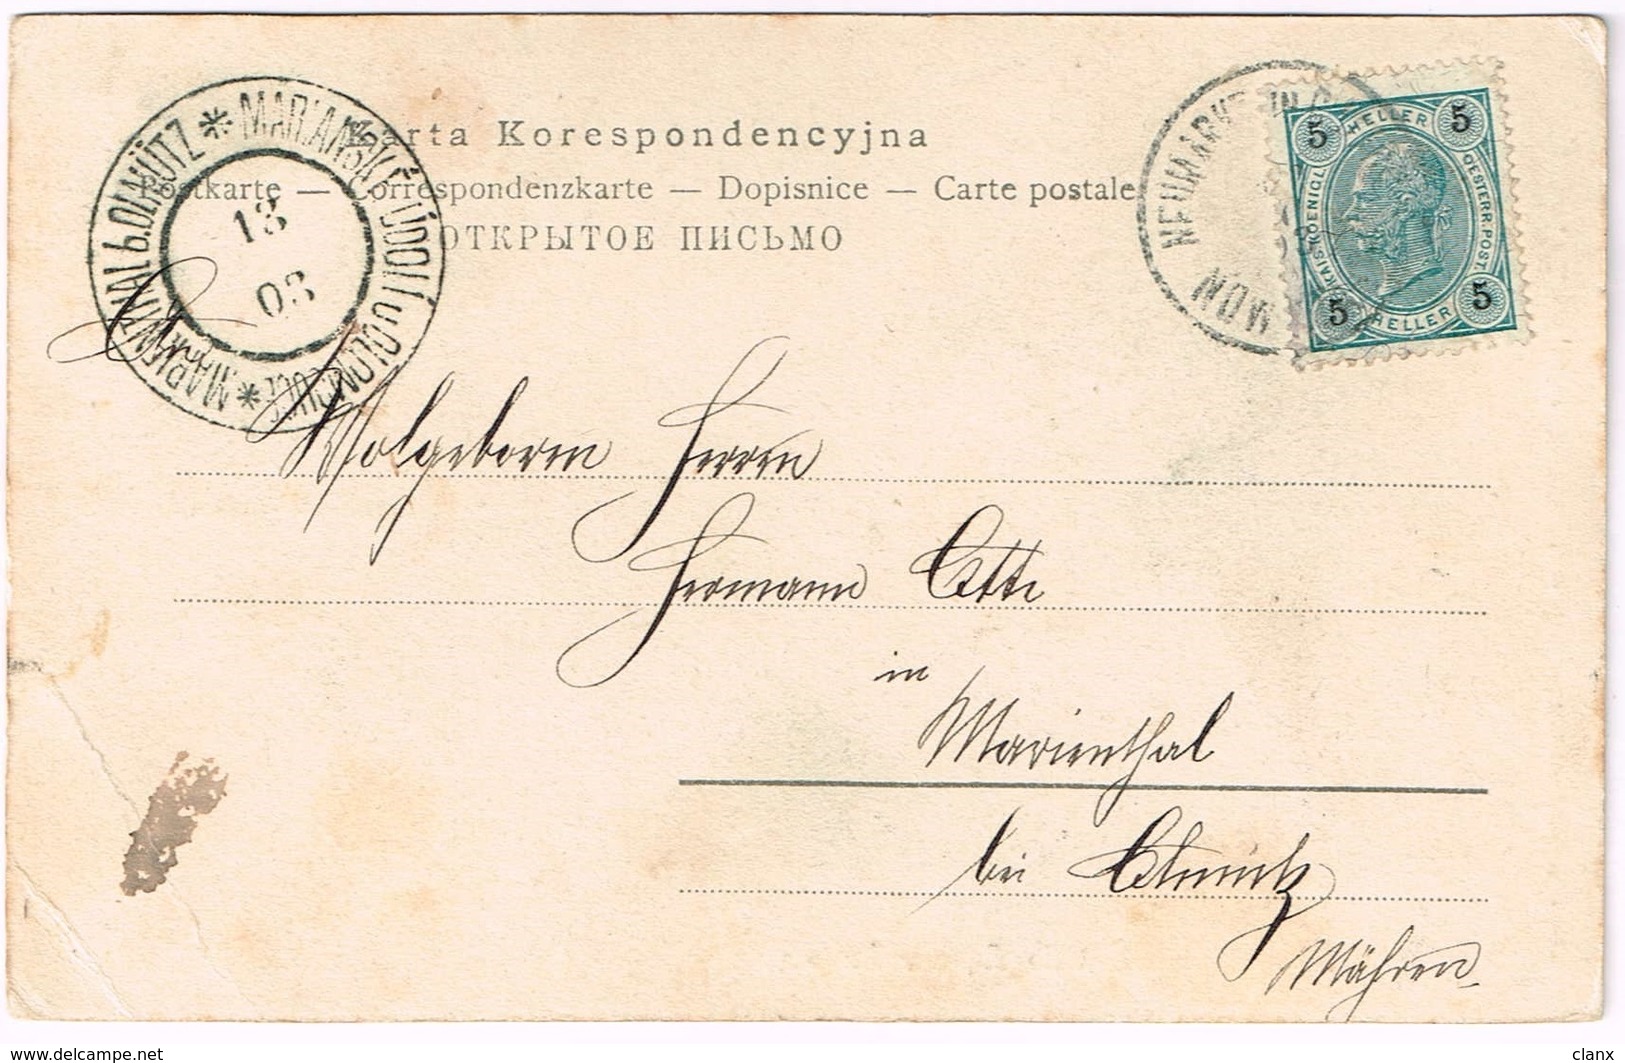 Karta Korespondencyjna
Postkarte — Correspondenzkarte — Dopisnice — Carte postale
ОТКРЫТОЕ ПИСЬМО
MARIÁNSKÉ ÚDOLÍ u OLOMOUCE * MARIENTHAL b. OLMÜTZ *
13
03
NEUMARKT IN
5 HELLER 5
KAIS. KOENIGL. OESTERR. POST
5 HELLER 5
Wolgeboren Herrn
Hermann Otte
in
Marienthal
bei Olmütz
Mähren
www.delcampe.net
clanx